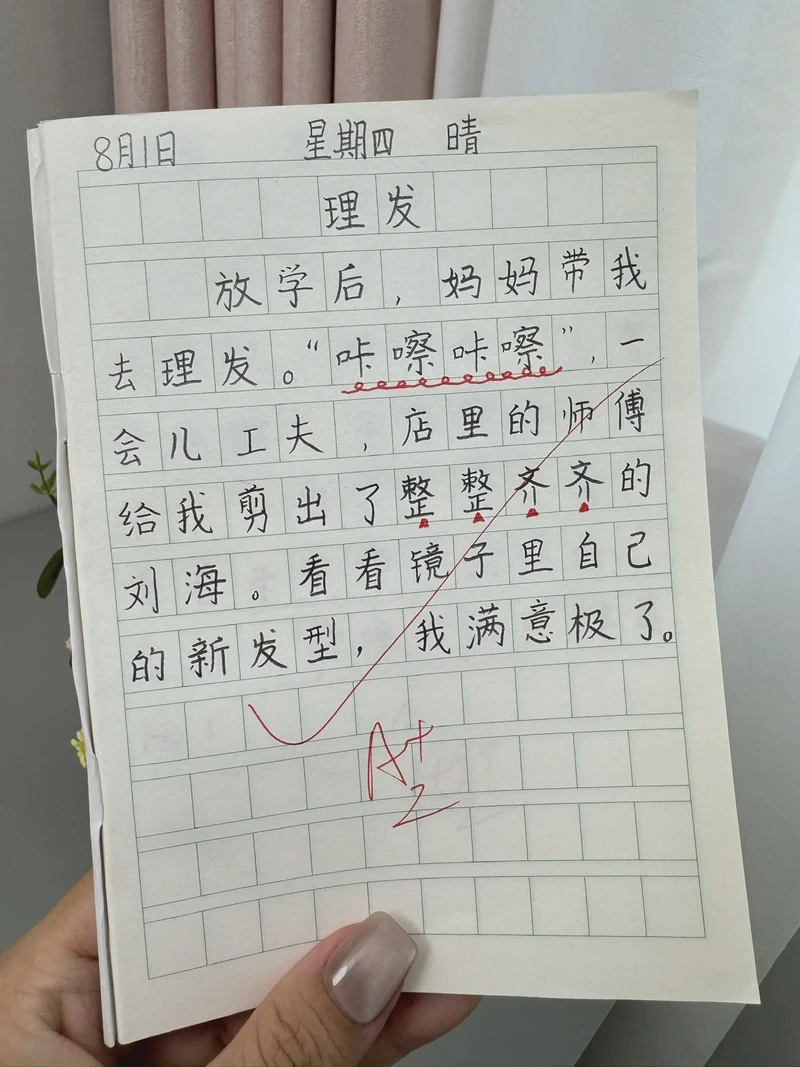 8月1日 星期四 晴
理发
放学后，妈妈带我
去理发。“咔嚓咔嚓”，一
会儿工夫，店里的师傅
给我剪出了整整齐齐的
刘海。看看镜子里自己
的新发型，我满意极了。
A+
2